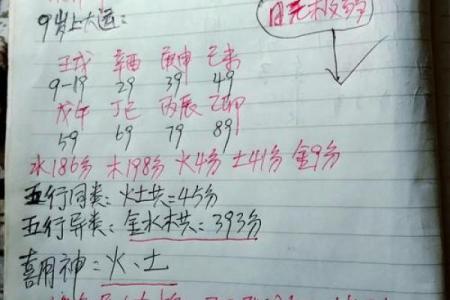 9岁上大运:
日元极弱
壬戌 辛酉 庚申 己未
9-19 29 39 49
戊午 丁巳 丙辰 乙卯
59 69 79 89
水186分 木198分 火4分 土41分 金9分
五行同类:火土共=45分
五行异类:金水木共=393分
喜用神=火、土